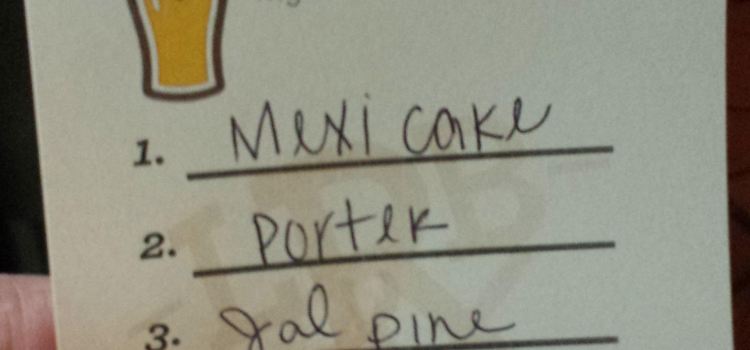 1. Mexi cake
2. Porter
3. Jal pine